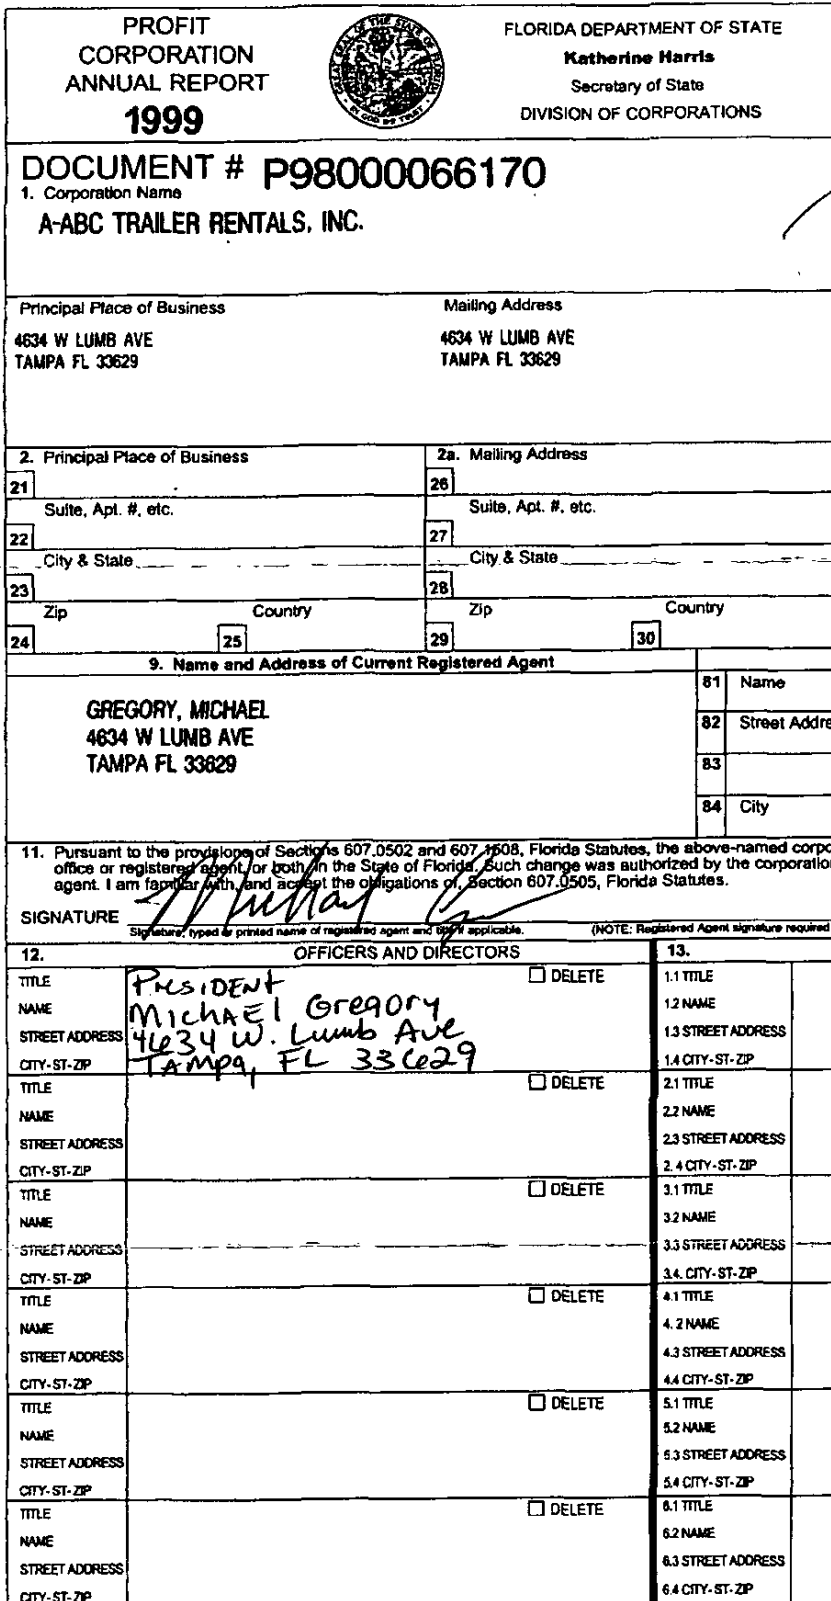 PROFIT
CORPORATION
ANNUAL REPORT
1999
FLORIDA DEPARTMENT OF STATE
Katherine Harris
Secretary of State
DIVISION OF CORPORATIONS
DOCUMENT # P98000066170
1. Corporation Name
A-ABC TRAILER RENTALS, INC.
Principal Place of Business
4634 W LUMB AVE
TAMPA FL 33629
Mailing Address
4634 W LUMB AVE
TAMPA FL 33629
2. Principal Place of Business
2a. Mailing Address
21
26
Suite, Apt. #, etc.
Suite, Apt. #, etc.
22
27
City & State
City & State
23
28
Zip Country
Zip Country
24 25
29 30
9. Name and Address of Current Registered Agent
GREGORY, MICHAEL
4634 W LUMB AVE
TAMPA FL 33629
81 Name
82 Street Addre
83
84 City
11. Pursuant to the provisions of Sections 607.0502 and 607.1508, Florida Statutes, the above-named corpo
office or registered agent, or both, in the State of Florida. Such change was authorized by the corporatio
agent. I am familiar with, and accept the obligations of, Section 607.0505, Florida Statutes.
SIGNATURE Michael
Signature, typed or printed name of registered agent and title if applicable. (NOTE: Registered Agent signature required
12. OFFICERS AND DIRECTORS 13.
TITLE President DELETE
NAME Michael Gregory
STREET ADDRESS 4634 W. Lumb Ave
CITY-ST-ZIP Tampa, FL 33629
1.1 TITLE
1.2 NAME
1.3 STREET ADDRESS
1.4 CITY-ST-ZIP
TITLE DELETE
NAME
STREET ADDRESS
CITY-ST-ZIP
2.1 TITLE
2.2 NAME
2.3 STREET ADDRESS
2.4 CITY-ST-ZIP
TITLE DELETE
NAME
STREET ADDRESS
CITY-ST-ZIP
3.1 TITLE
3.2 NAME
3.3 STREET ADDRESS
3.4. CITY-ST-ZIP
TITLE DELETE
NAME
STREET ADDRESS
CITY-ST-ZIP
4.1 TITLE
4.2 NAME
4.3 STREET ADDRESS
4.4 CITY-ST-ZIP
TITLE DELETE
NAME
STREET ADDRESS
CITY-ST-ZIP
5.1 TITLE
5.2 NAME
5.3 STREET ADDRESS
5.4 CITY-ST-ZIP
TITLE DELETE
NAME
STREET ADDRESS
CITY-ST-ZIP
6.1 TITLE
6.2 NAME
6.3 STREET ADDRESS
6.4 CITY-ST-ZIP